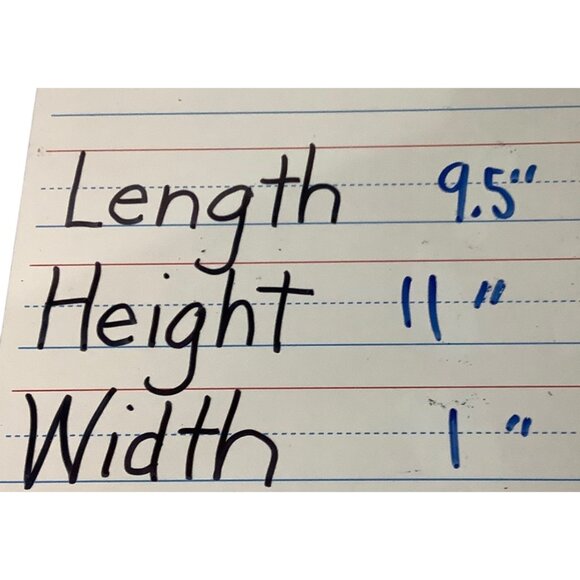 Length 9.5"
Height 11"
Width 1"